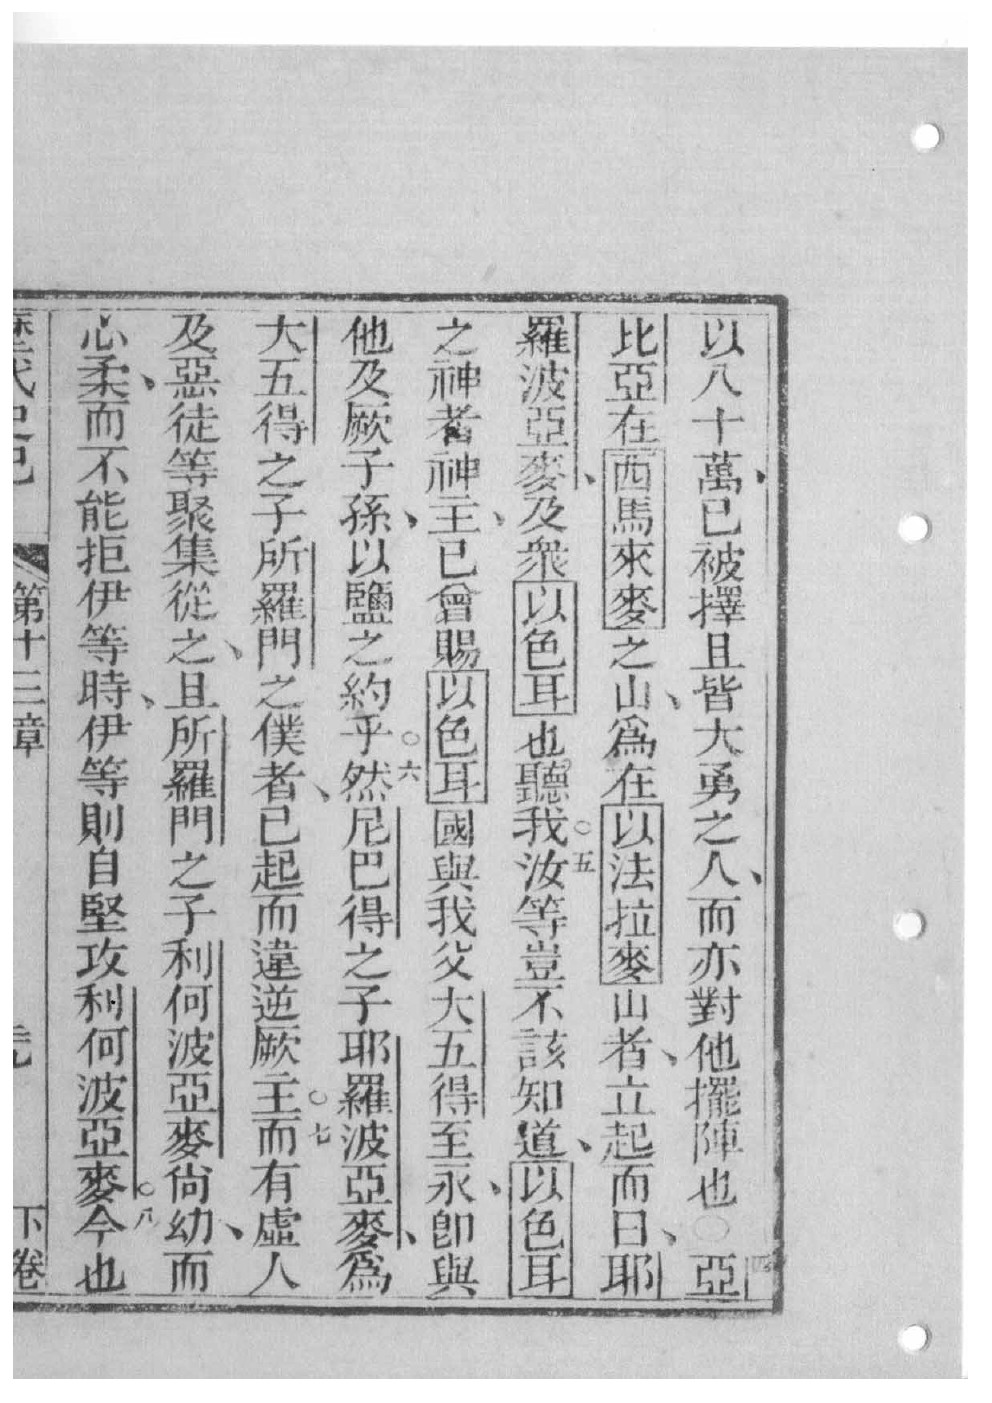 以八十萬、已被擇且皆大勇之人、而亦對他擺陣也○四亞
比亞在西馬來麥之山、爲在以法拉麥山者、立起而曰、耶
羅波亞麥、及衆以色耳也聽我○五汝等豈不該知道、以色耳
之神者神主、已曾賜以色耳國與我父大五得至永、卽與
他及厥子孫、以鹽之約乎○六然尼巴得之子耶羅波亞麥、爲
大五得之子所羅門之僕者、已起而違逆厥主○七而有虛人
及惡徒等聚集從之、且所羅門之子利何波亞麥尙幼、而
心柔、而不能拒伊等時、伊等則自堅攻利何波亞麥○八今也
歷代史記 第十三章 下卷